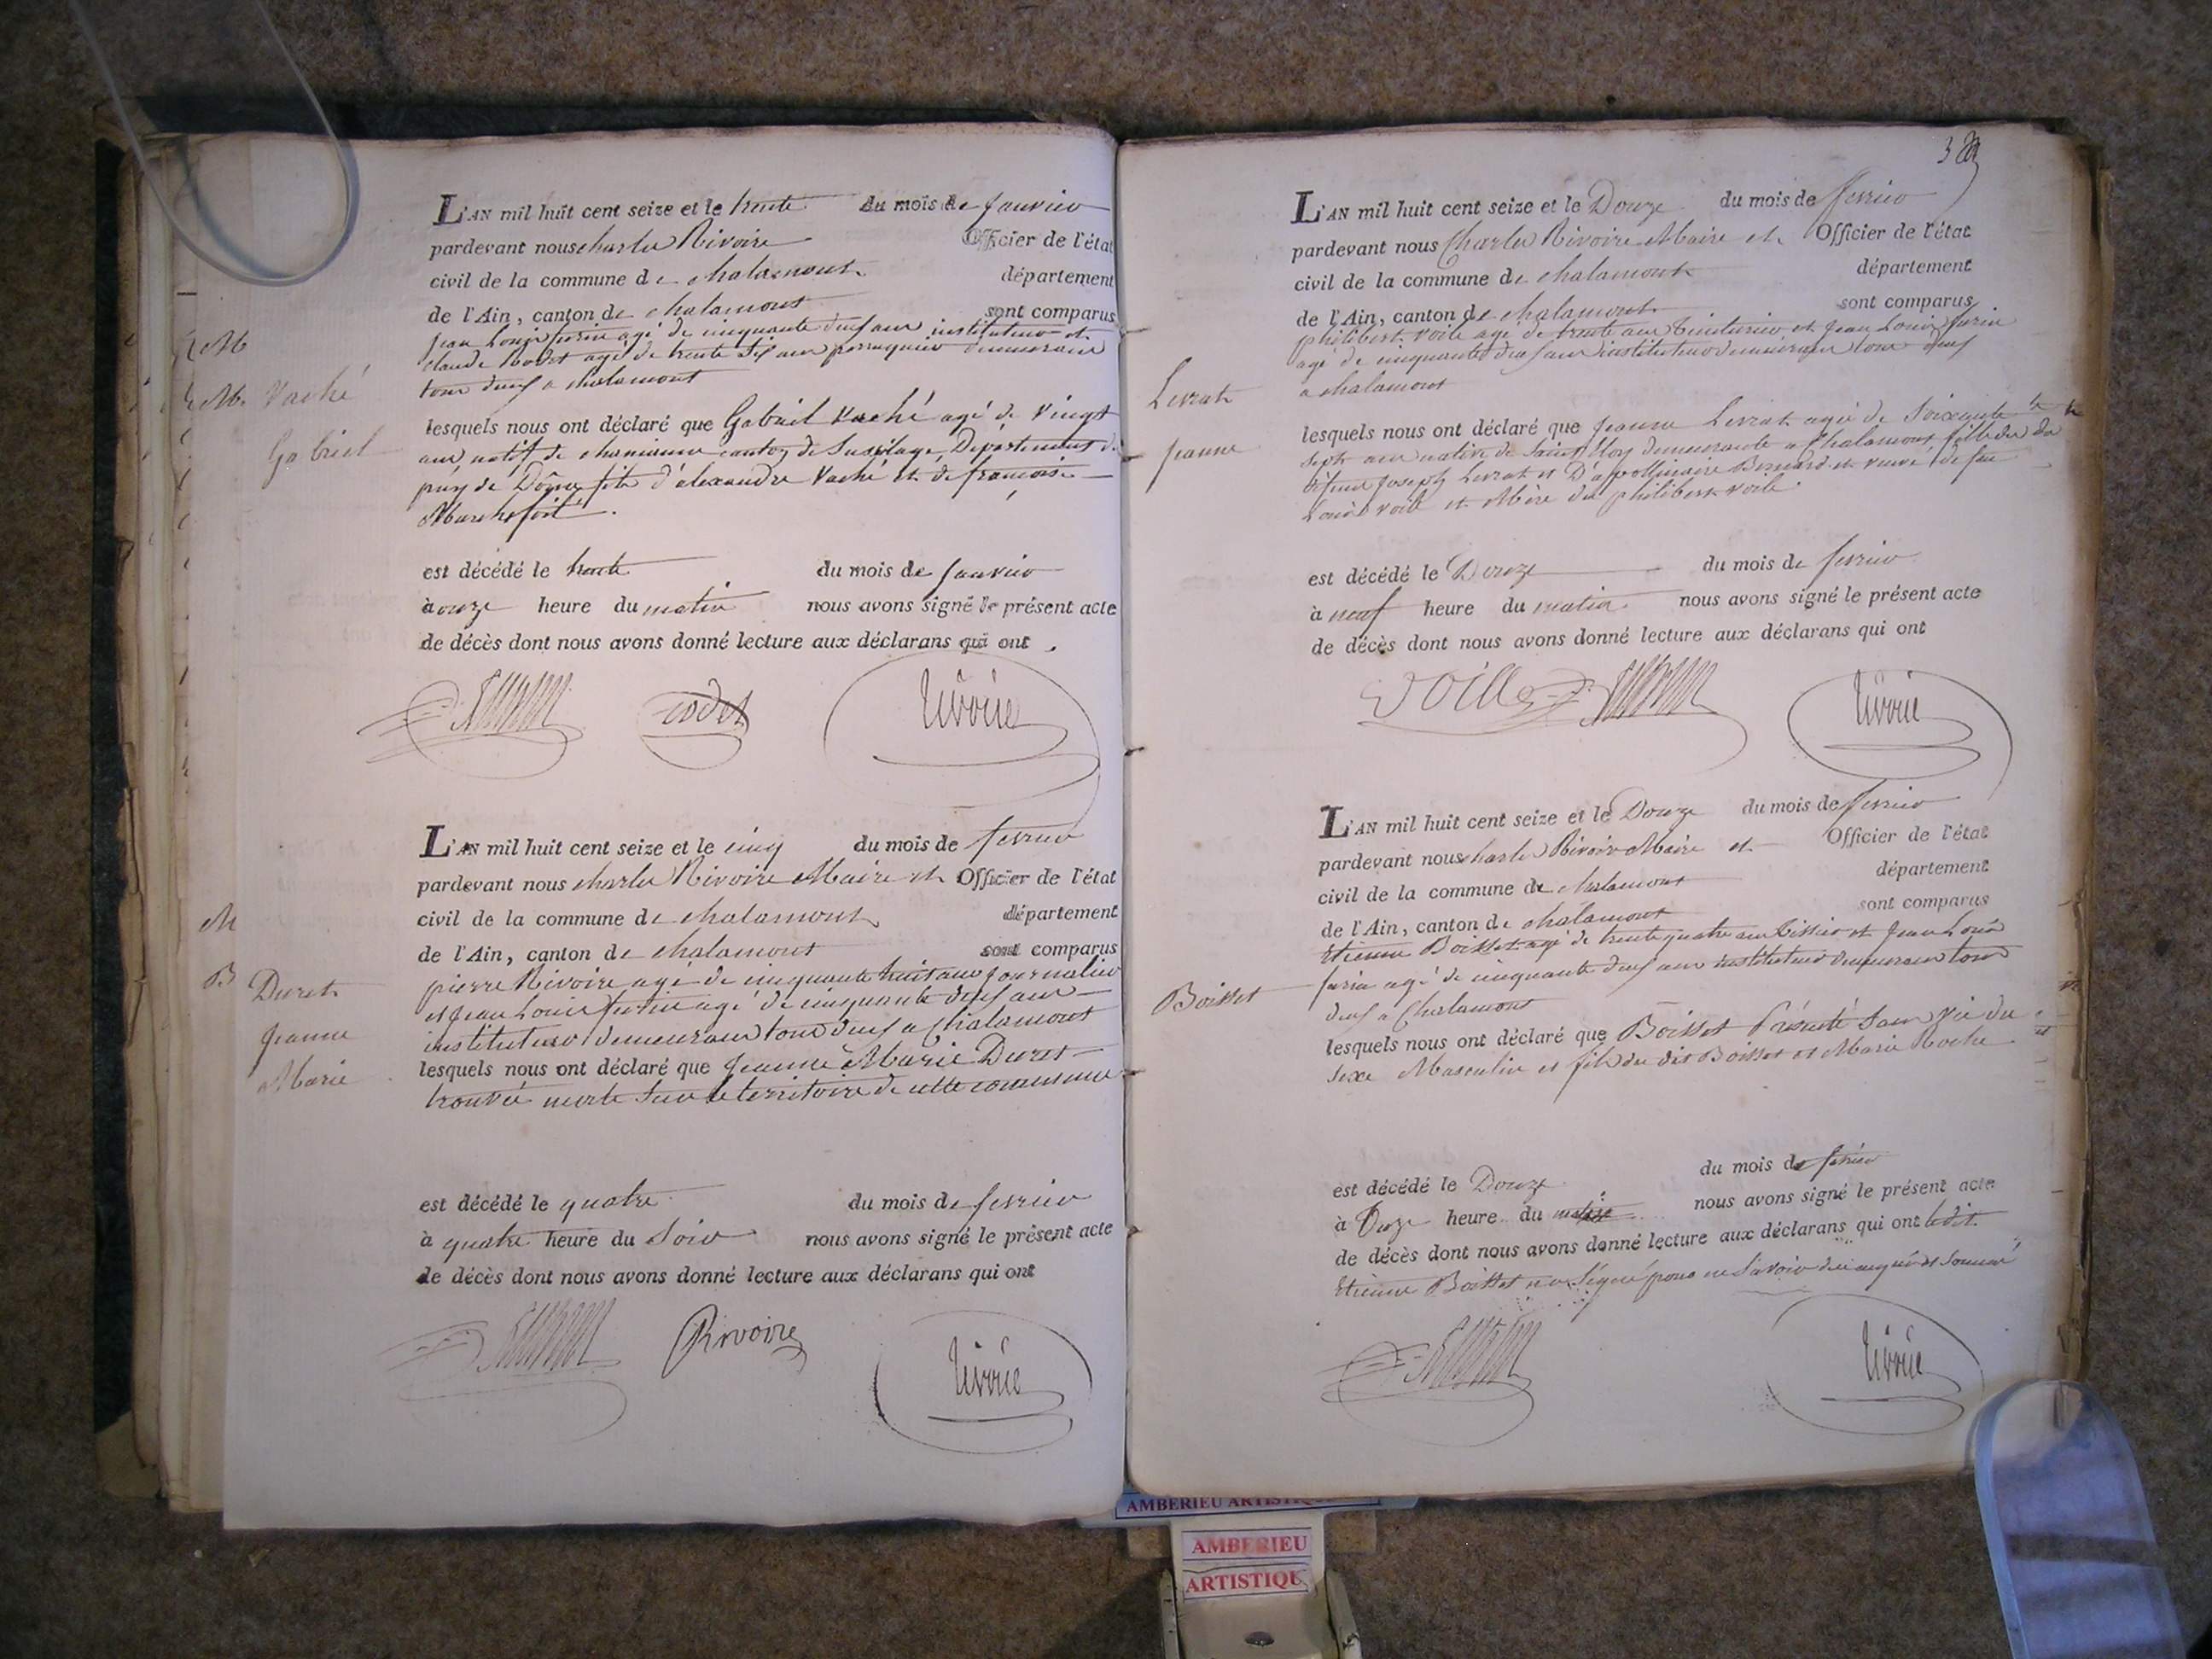 Vaché
Gabriel
L'AN mil huit cent seize et le trente du mois de janvier
pardevant nous charles Rivoire Officier de l'état
civil de la commune de chalamont département
de l'Ain, canton de chalamont sont comparus
jean Louis furin agé de cinquante deuf ans instituteur et
claude Rodet agé de trente sif ans perruquier demeurans
tous deuf a chalamont
lesquels nous ont déclaré que Gabriel Vaché agé de vingt
ans natif de canton de Département de
puy de Dôme fils d'alexandre Vaché et de francoise
est décédé le trente du mois de janvier
à onze heure du matin nous avons signé le présent acte
de décès dont nous avons donné lecture aux déclarans qui ont
Rodet Rivoire
M
B
Duret
jeanne
Marie
L'AN mil huit cent seize et le cinq du mois de fevrier
pardevant nous charles Rivoire Maire et Officier de l'état
civil de la commune de chalamont département
de l'Ain, canton de chalamont sont comparus
pierre Rivoire agé de cinquante huit ans journalier
et jean Louis furin agé de cinquante deuf ans
instituteur demeurans tous deuf a Chalamont
lesquels nous ont déclaré que jeanne Marie Duret
trouvée morte sur le territoire de cette commune
est décédé le quatre du mois de fevrier
à quatre heure du soir nous avons signé le présent acte
de décès dont nous avons donné lecture aux déclarans qui ont
Rivoire Rivoire
38
Levrat
jeanne
L'AN mil huit cent seize et le Douze du mois de fevrier
pardevant nous Charles Rivoire Maire et Officier de l'état
civil de la commune de chalamont département
de l'Ain, canton de chalamont sont comparus
philibert voile agé de trente ans teinturier et jean Louis furin
agé de cinquante deuf ans instituteur demeurans tous deuf
a chalamont
lesquels nous ont déclaré que jeanne Levrat agée de soixante
sept ans native de saint Eloy demeurante a Chalamont fille de
défunt joseph Levrat et D'appollinaire Bernard et veuve de feu
Louis voile et Mère du philibert voile
est décédé le Douze du mois de fevrier
à neuf heure du matin nous avons signé le présent acte
de décès dont nous avons donné lecture aux déclarans qui ont
Voille Rivoire
Boisset
L'AN mil huit cent seize et le Douze du mois de fevrier
pardevant nous charles Rivoire Maire et Officier de l'état
civil de la commune de chalamont département
de l'Ain, canton de chalamont sont comparus
Etienne Boisset agé de trente quatre ans tissier et jean Louis
furin agé de cinquante deuf ans instituteur demeurans tous
deuf a Chalamont
lesquels nous ont déclaré que Boisset Présenté sans vie du
sexe Masculin et fils du dit Boisset et Marie Roche
est décédé le Douze du mois de fevrier
à Onze heure du matin nous avons signé le présent acte
de décès dont nous avons donné lecture aux déclarans qui ont ledit
Etienne Boisset n'a signé pour ne savoir de ce enquis et sommé
Rivoire
AMBERIEU ARTISTIQUE
AMBERIEU
ARTISTIQU